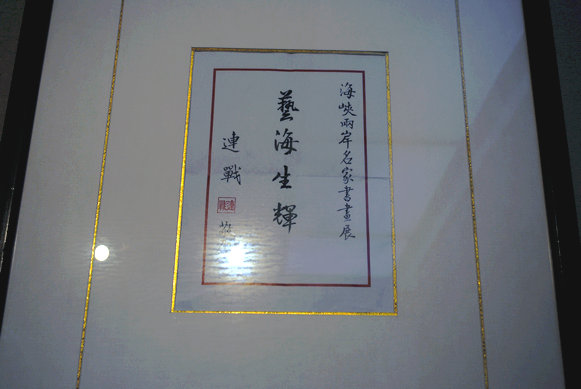 海峽兩岸名家書畫展
藝海生輝
連戰